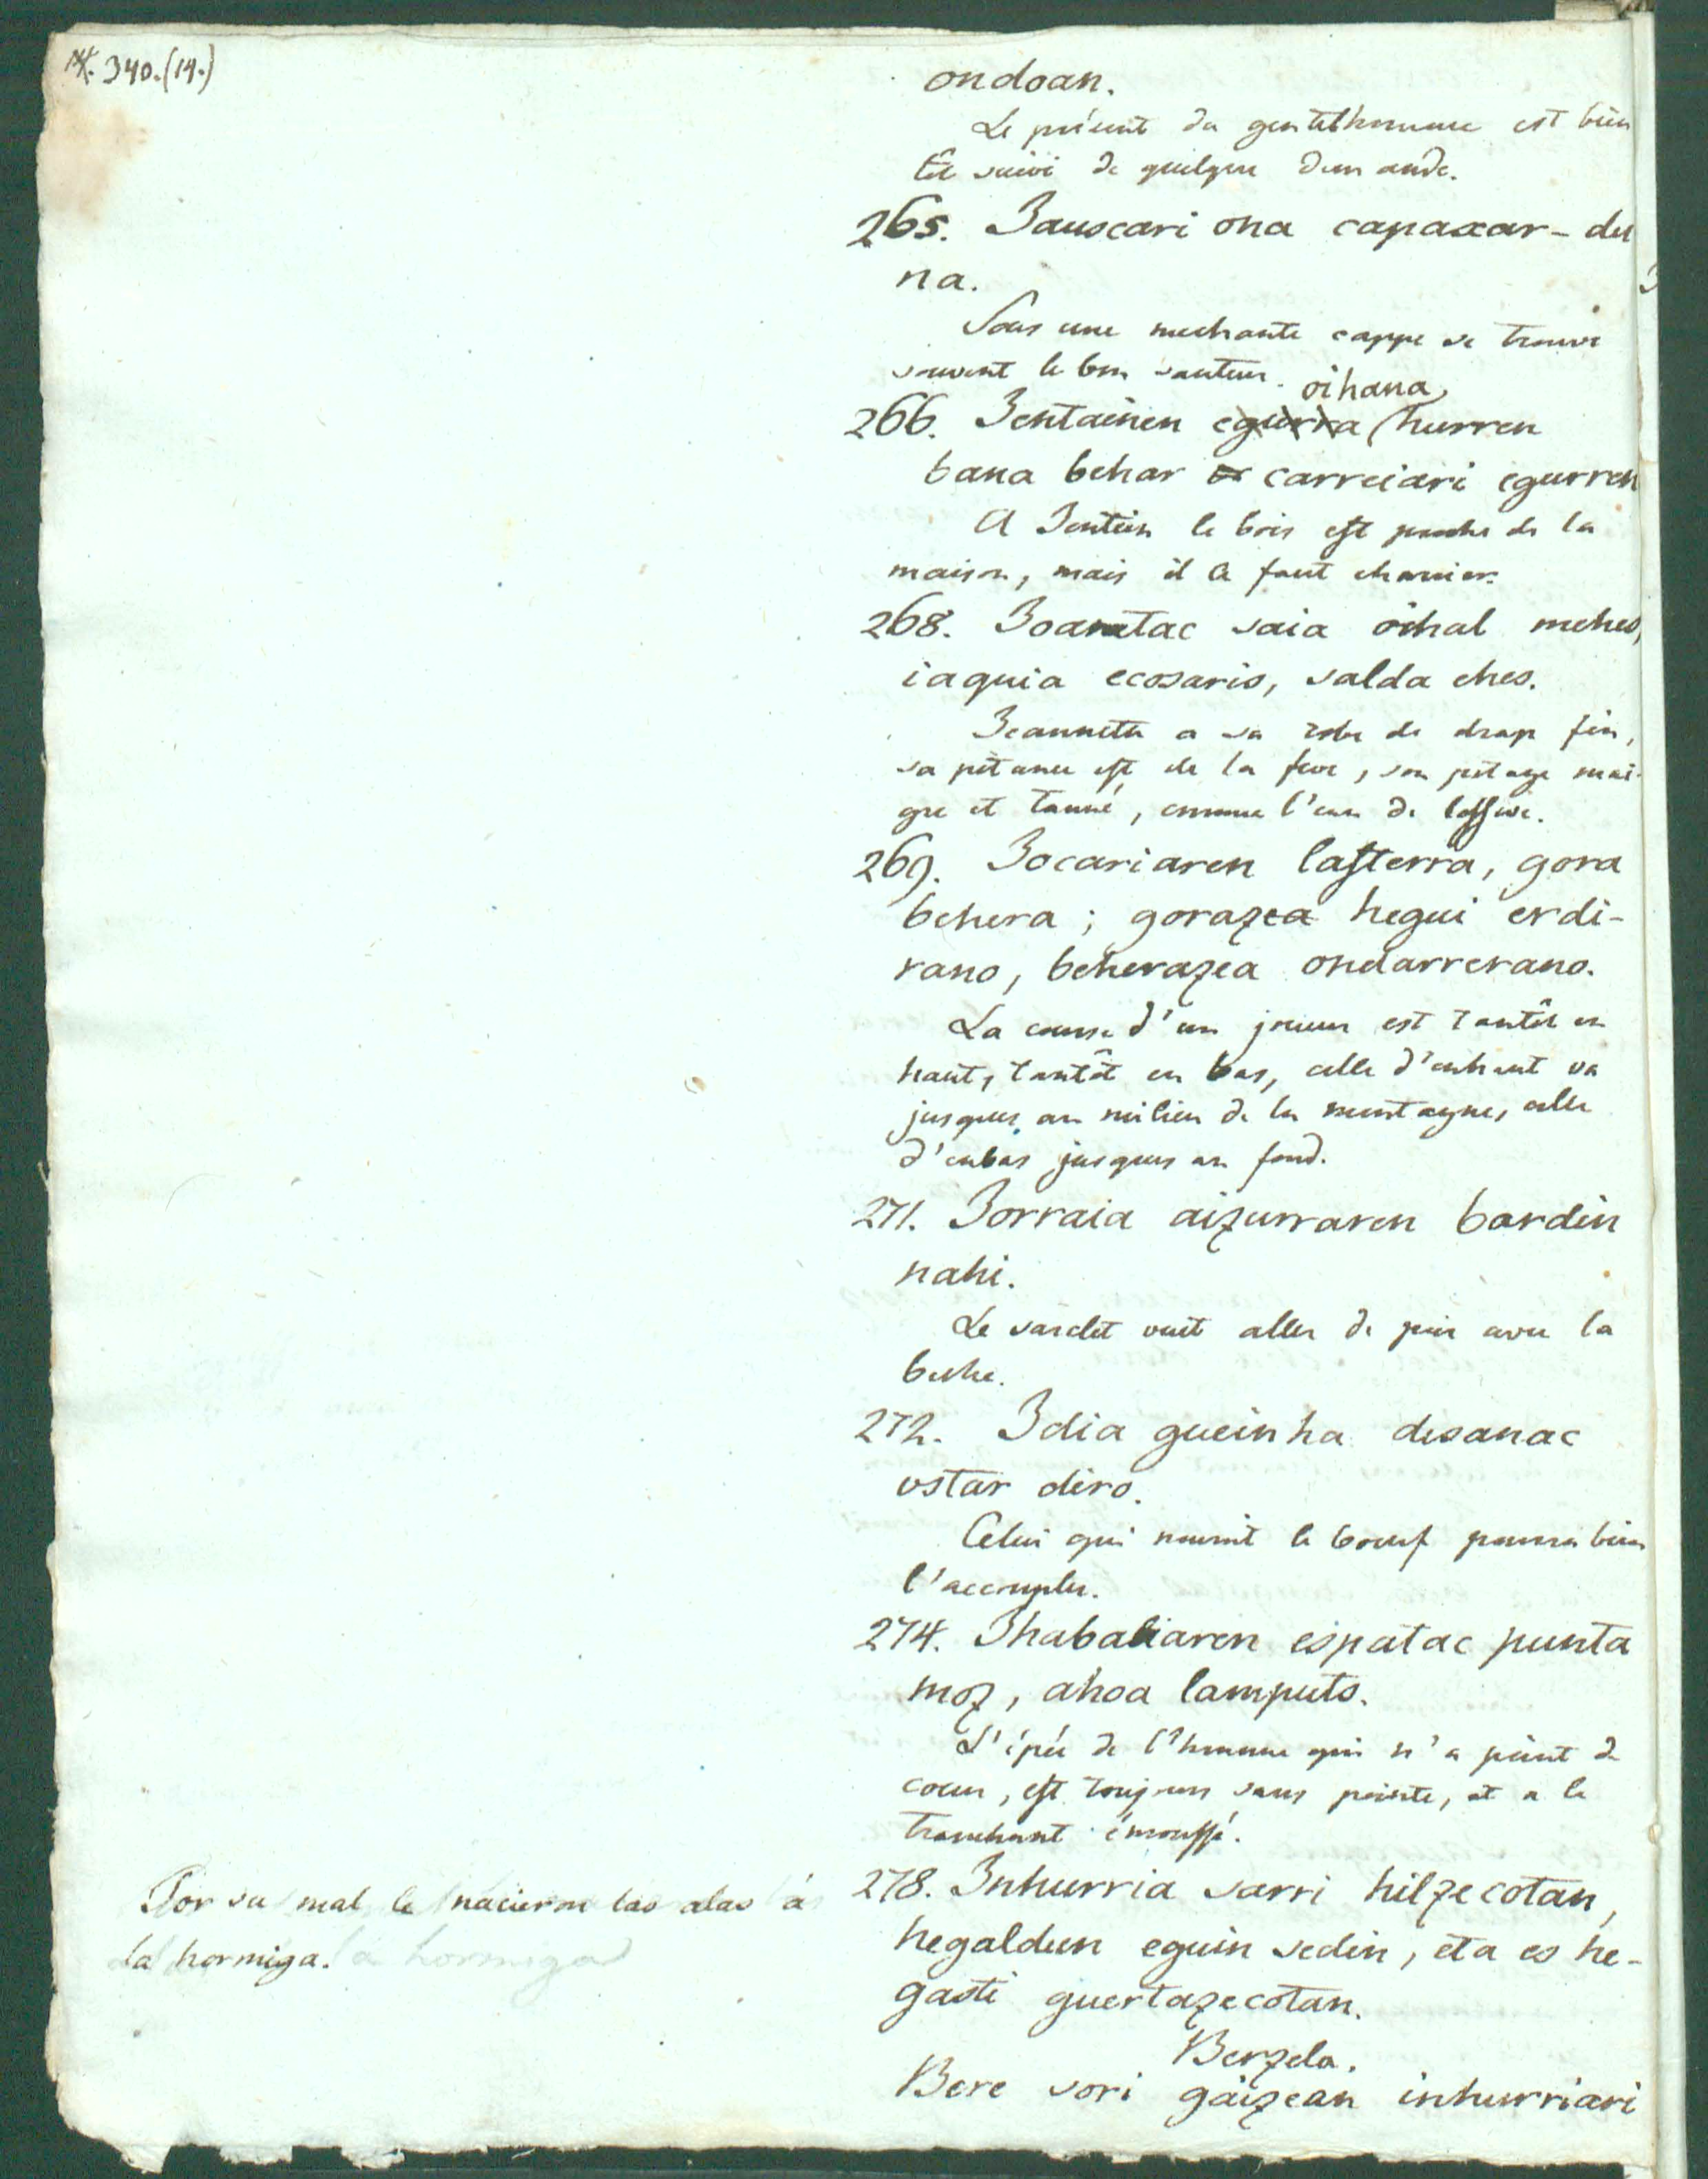 N. 340.(14.)
ondoan.
Le présent du gentilhomme est bien
tôt suivi de quelque demande.
265. Jauscari ona capaxar-du
na.
Sous une mechante cappe se trouve
souvent le bon sauteur.
oihana,
266. Jentainen egurra hurren
bana behar carreiari egurren
A Jentein le bois est proche de la
maison, mais il le faut charrier.
268. Joanatac saia oihal mehes,
iaquia ecosaris, salda ches.
Jeannette a sa robe de drap fin,
sa pitance est de la feve, son potage mai-
gre et tanné, comme l'eau de lessive.
269. Jocariaren lasterra, gora
behera; gorazea hegui erdi-
rano, beherazea ondarrerano.
La course d'un joueur est tantôt en
haut, tantôt en bas, celle d'enhaut va
jusques au milieu de la montagne, celle
d'enbas jusques au fond.
271. Jorraia aizurraren bardin
nahi.
Le sarclet veut aller de pair avec la
beche.
272. Idia gueinha desanac
ustar diro.
Celui qui nourrit le boeuf pourra bien
l'accoupler.
274. Ihabaliaren espatac punta
moz, ahoa lamputs.
L'épée de l'homme qui n'a point de
coeur, est toujours sans pointe, et a le
tranchant émoussé.
Por su mal le nacieron las alas á
la hormiga.
278. Inhurria sarri hilzecotan,
hegaldun eguin sedin, eta es he-
gasti guertazecotan.
Berzela.
Bere sori gaizean inhurriari